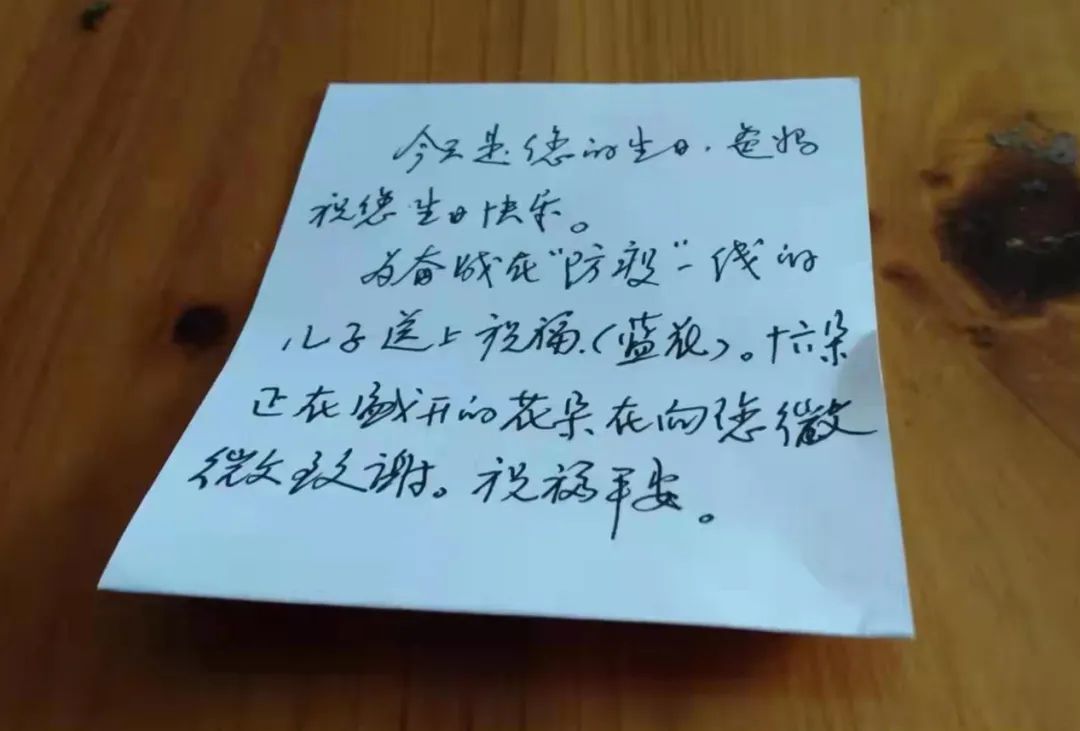 今天是您的生日,爸妈
祝您生日快乐。
为奋战在“防疫”一线的
儿子送上祝福(蓝花)。十六朵
正在盛开的花朵在向您微
微致谢。祝福平安。